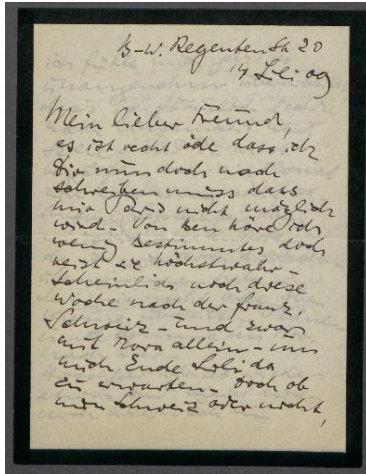 B-W. Regenten Str 20
14 Juli 09
Mein lieber Freund,
es ist recht öde dass ich
Dir nun doch noch
schreiben muss dass
mir Paris nicht möglich
wird. Von höre ich
wenig Bestimmtes doch
reist sie höchstwahr-
scheinlich noch diese
Woche nach der franz.
Schweiz - und zwar
mit Nora allein - um
mich Ende Juli da
zu erwarten. Doch ob
nun Schweiz oder nicht,